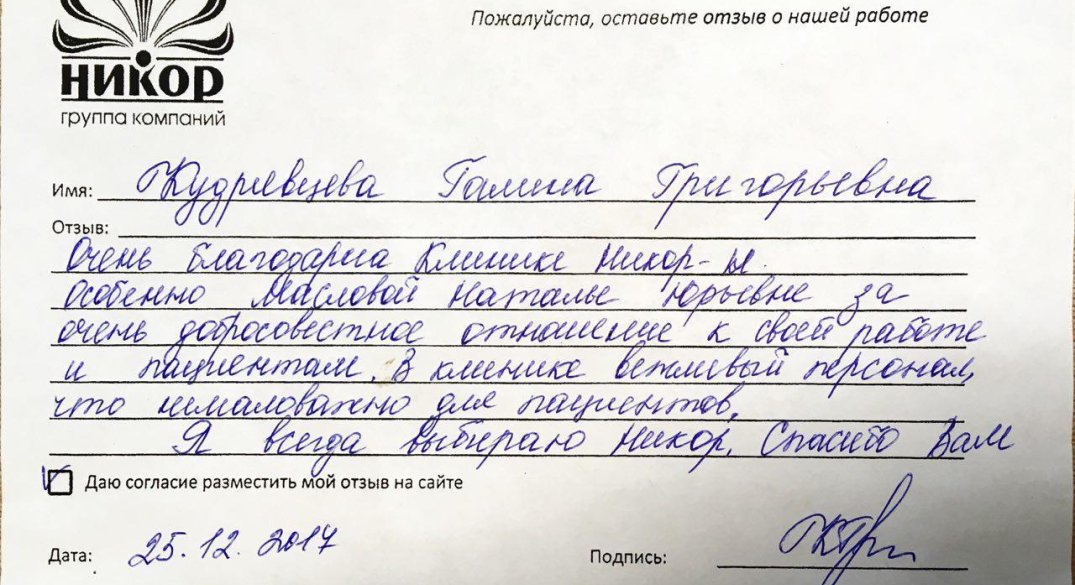 Пожалуйста, оставьте отзыв о нашей работе
НИКОР
группа компаний
Имя: Кудрявцева Галина Григорьевна
Отзыв:
Очень благодарна Клинике Никор-
Особенно Масловой Наталье Юрьевне за
очень добросовестное отношение к своей работе
и пациентам. В клинике вежливый персонал,
что немаловажно для пациентов.
Я всегда выбираю Никор. Спасибо Вам
Даю согласие разместить мой отзыв на сайте
Дата: 25.12.2017
Подпись: